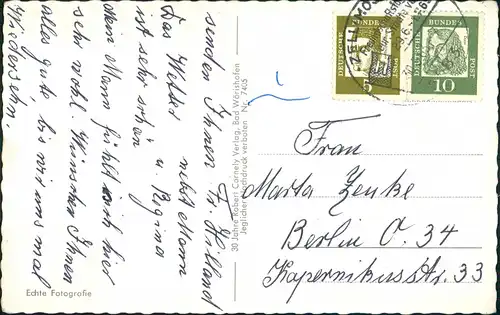 Das Wetter
ist sehr schön.
Mein Mann fühlt sich hier
sehr wohl. Wünschen Ihnen
alles gute bis wir uns mal
Wiedersehn.
senden Ihnen Fr. Hilland
nebst Mann
u. Regina
Echte Fotografie
30 Jahre Robert Cornely Verlag, Bad Wörishofen
Jeglicher Nachdruck verboten Nr. 7405
DEUTSCHE BUNDESPOST
5
DEUTSCHE BUNDESPOST
10
Frau
Marta Zenke
Berlin O. 34
Kopernikusstr. 33